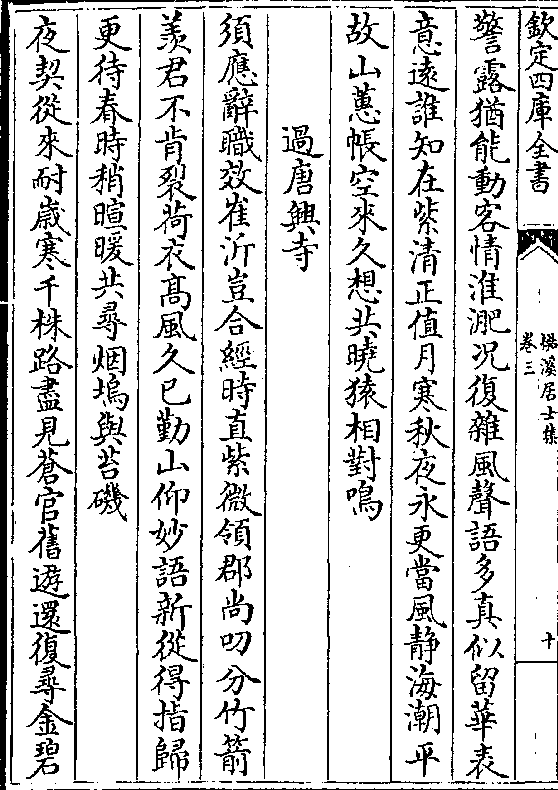 欽定四庫全書
梯溪居士集
卷三
十
警露猶能動客情淮淝况復雜風聲語多真似留華表
意遠誰知在紫清正值月寒秋夜永更當風静海潮平
故山蕙帳空來久想共曉猿相對鳴
過唐興寺
須應辭職效崔沂豈合經時直紫微領郡尚叨分竹箭
羨君不肯裂荷衣髙風久已勤山仰妙語新從得指歸
更待春時稍暄暖共尋烟塢與苔磯
夜契從來耐嵗寒千株路盡見蒼官舊遊還復尋金碧